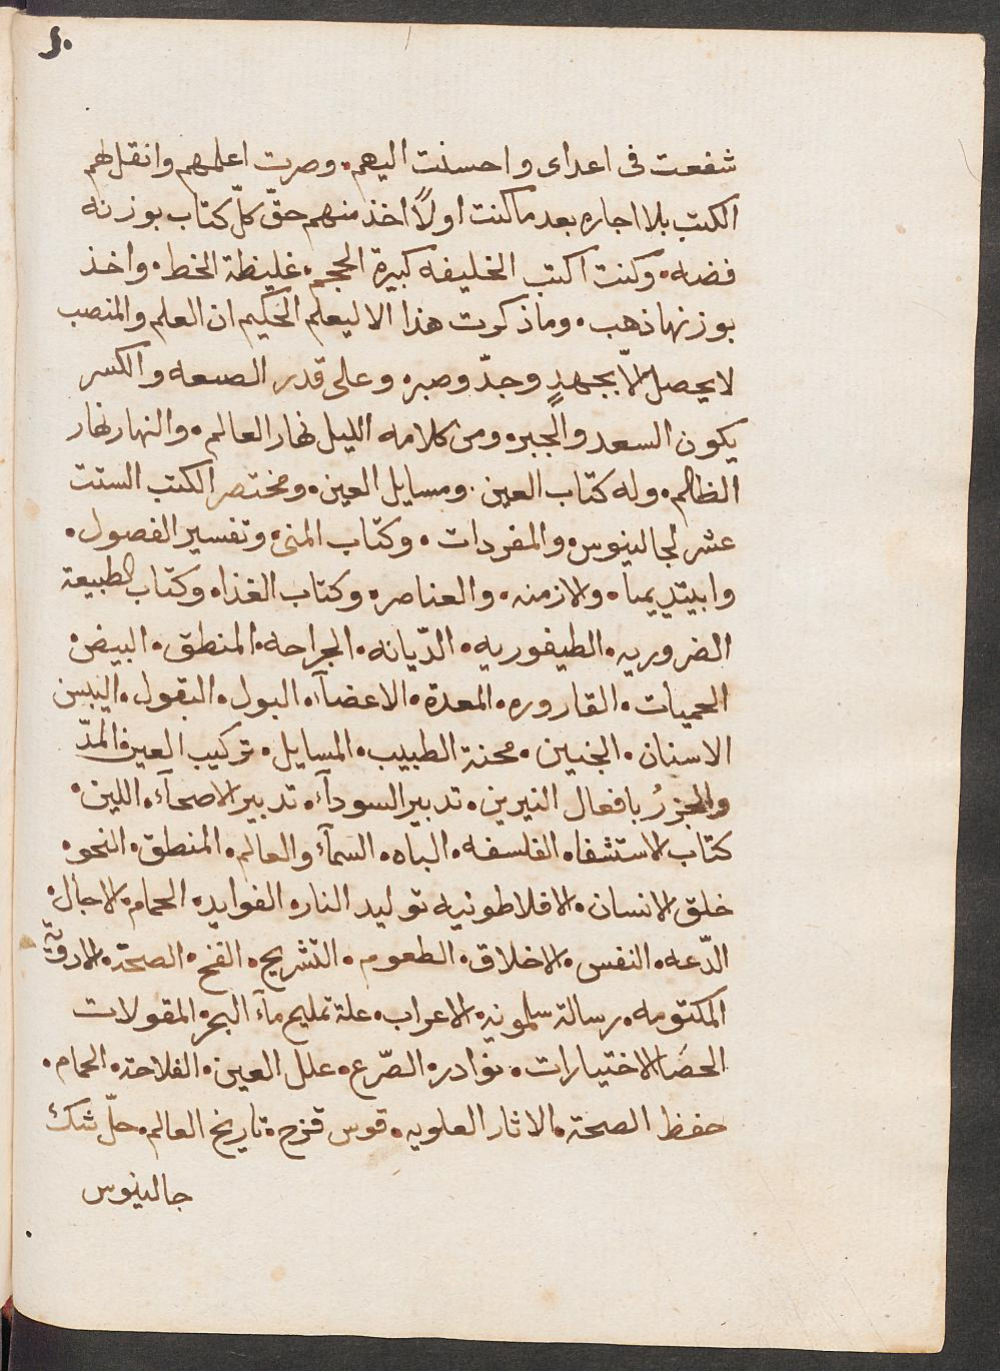 شفعت فى اعداى واحسنت اليهم. وصرت اعلمهم وانقل لهم
الكتب بلا اجاره بعد ما كنت اولاً اخذ منهم حقّ كلّ كتاب بوزنه
فضه. وكنت اكتب الخليفه كبيرة الحجم. غليظة الخط. واخذ
بوزنها ذهب. وما ذكرت هذا الا ليعلم الحكيم ان العلم والمنصب
لا يحصل الّا بجهدٍ وجدّ وصبر. وعلى قدر الصعه والكسر
يكون السعد والجبر. ومن كلامه الليل نهار العالم. والنهار نهار
الظالم. وله كتاب العين. ومسايل العين. ومختصر الكتب الستت
عشر لجالينوس. والمفردات. وكتاب المنى. وتفسير الفصول.
وابيتديميا. والازمنه. والعناصر. وكتاب الغذا. وكتاب الطبيعة
الضروريه. الطيفوريه. الدّيانه. الجراحه. المنطق. البيض.
الحميات. القاروره. المعدة. الاعضآء. البول. البقول. اليبس
الاسنان. الجنين. محنة الطبيب. المسايل. تركيب العين. المدّ
والجزرُ بافعال النيرين. تدبير السودآء. تدبير الاصحآء. اللين.
كتاب الاستشفا. الفلسفه. الباه. السمآء والعالم. المنطق. النحو.
خلق الانسان. الافلاطونيه توليد النار. الفوايد. الحمام. الاجال.
الدّعه. النفس. الاخلاق. الطعوم. التشريح. الفخ. الصحة. الادوية
المكتومه. رسالة سلمونيه. الاعراب. علة تمليح مآء البحر. المقولات
الحصَا. الاختيارات. نوادر. الصّرع. علل العين. الفلاحة. الحمام.
حفظ الصحة. الاثار العلويه. قوس قزح. تاريخ العالم. حلّ شكّ
جالينوس